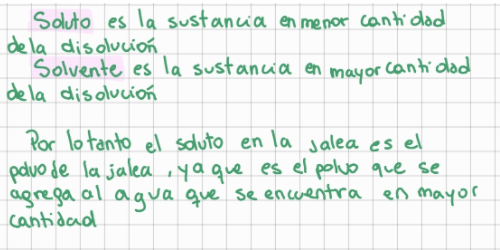 Soluto es la sustancia en menor cantidad
de la disolución
Solvente es la sustancia en mayor cantidad
de la disolución
Por lo tanto el soluto en la jalea es el
polvo de la jalea, ya que es el polvo que se
agrega al agua que se encuentra en mayor
cantidad